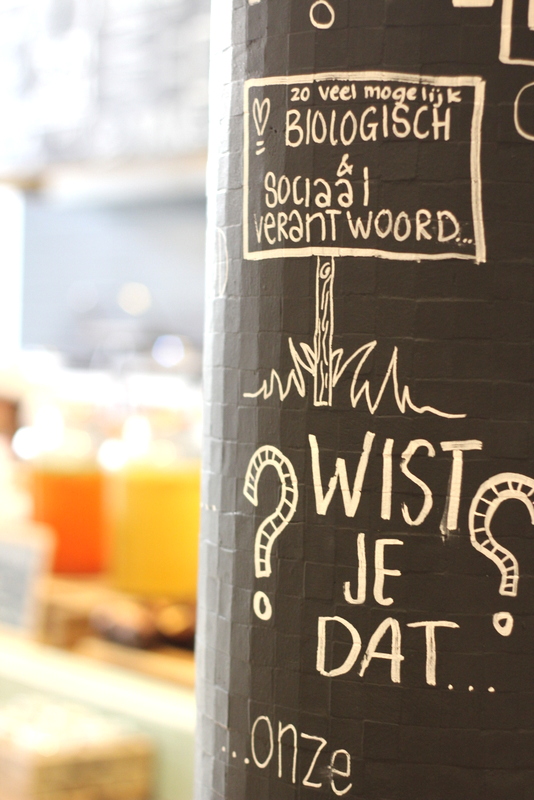 zo veel mogelijk
BIOLOGISCH
&
sociaal
verantwoord...
WIST
JE
DAT...
...onze